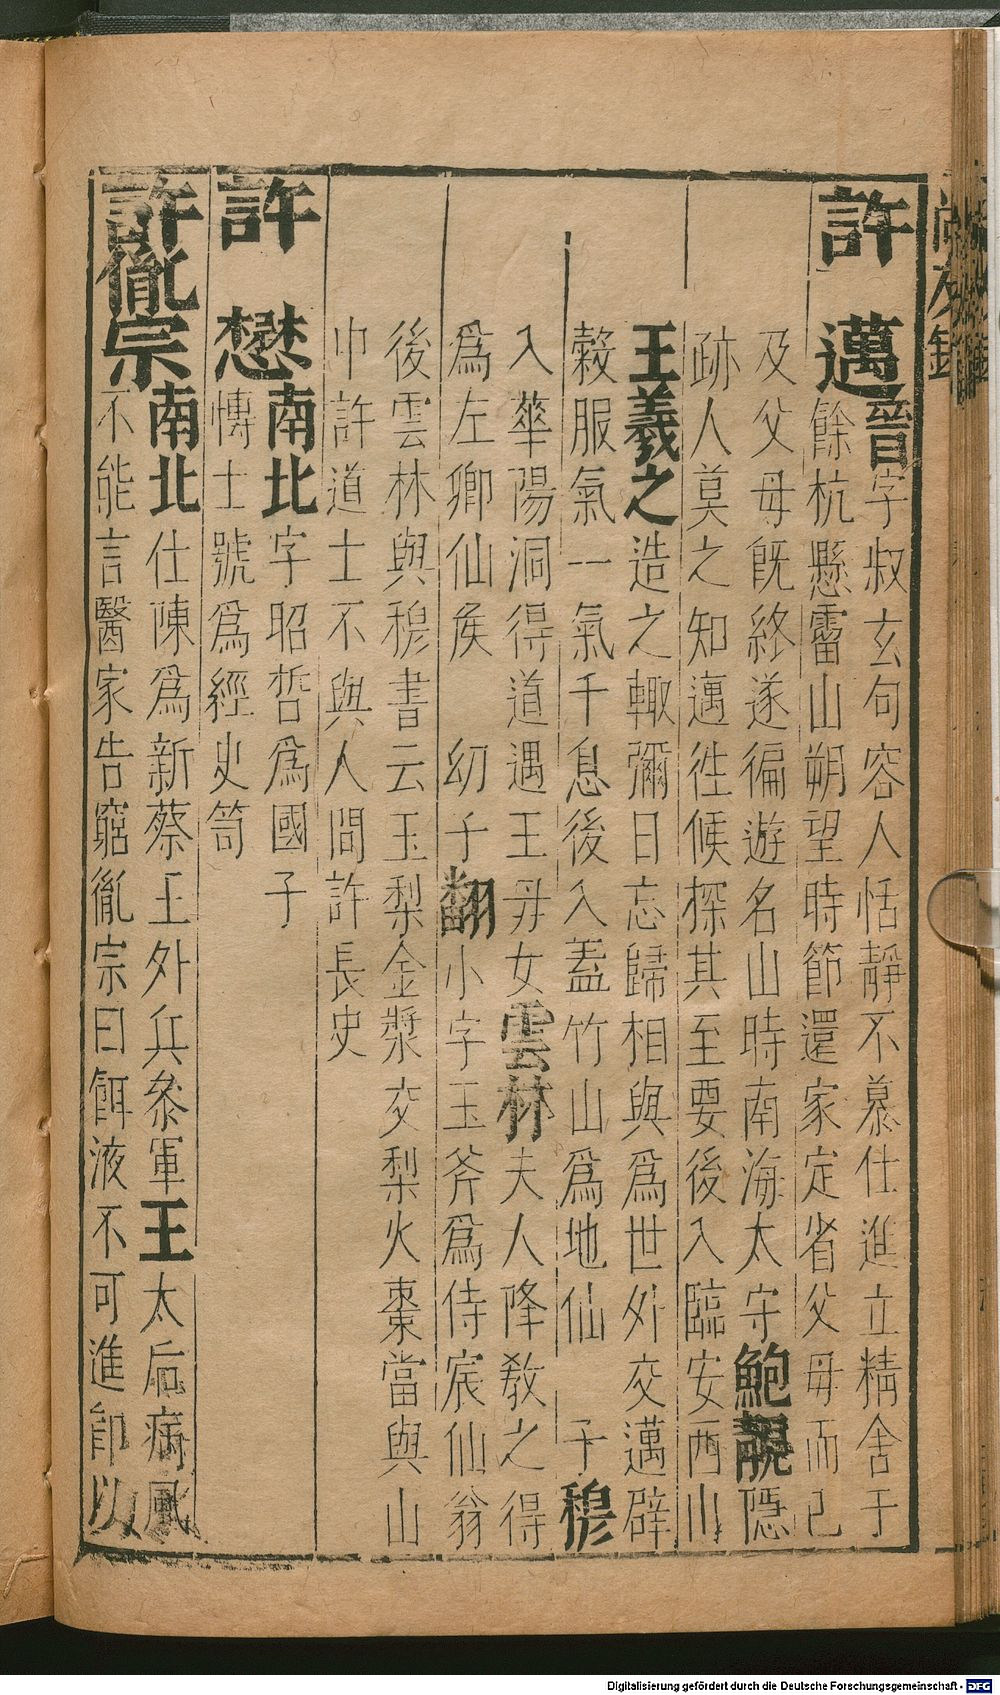 許邁晉字叔玄句容人恬靜不慕仕進立精舍于
餘杭懸霤山朔望時節還家定省父母而已
及父母旣終遂徧遊名山時南海太守鮑靚隱
跡人莫之知邁徃候探其至要後入臨安西山
王羲之造之輙彌日忘歸相與爲世外交邁辟
糓服氣一氣千息後入蓋竹山爲地仙 子穆
入華陽洞得道遇王毋女雲林夫人降敎之得
爲左卿仙矦 幼子翻小字玉斧爲侍宸仙翁
後雲林與穆書云玉梨金漿交梨火棗當與山
中許道士不與人間許長史
許懋南北字昭哲爲國子
愽士號爲經史笥
許胤宗南北仕陳爲新蔡王外兵叅軍王太后病風
不能言醫家告窮胤宗曰餌液不可進卽以
尚友錄
Digitalisierung gefördert durch die Deutsche Forschungsgemeinschaft - DFG